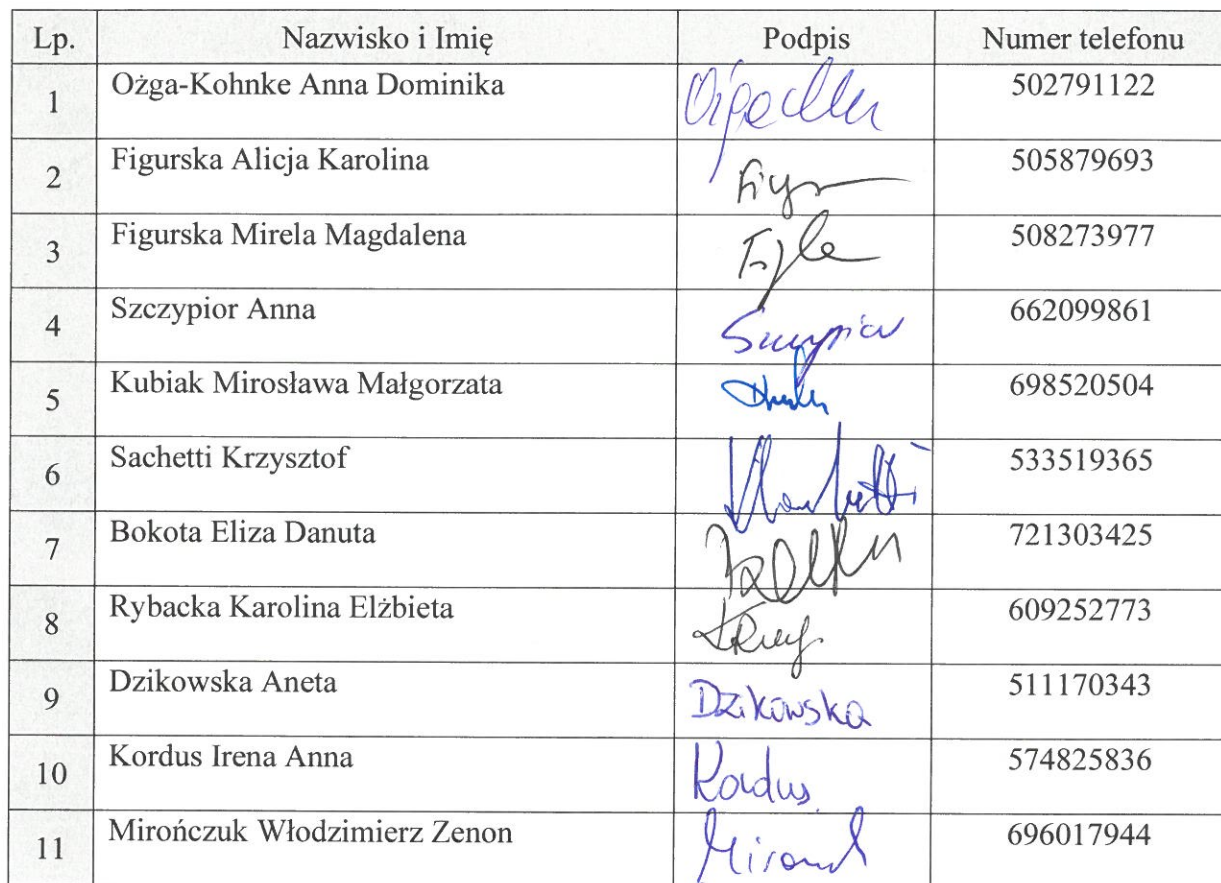 Lp. Nazwisko i Imię Podpis Numer telefonu
1 Ożga-Kohnke Anna Dominika 502791122
2 Figurska Alicja Karolina 505879693
3 Figurska Mirela Magdalena 508273977
4 Szczypior Anna 662099861
5 Kubiak Mirosława Małgorzata 698520504
6 Sachetti Krzysztof 533519365
7 Bokota Eliza Danuta 721303425
8 Rybacka Karolina Elżbieta 609252773
9 Dzikowska Aneta Dzikowska 511170343
10 Kordus Irena Anna Kordus 574825836
11 Mirończuk Włodzimierz Zenon 696017944